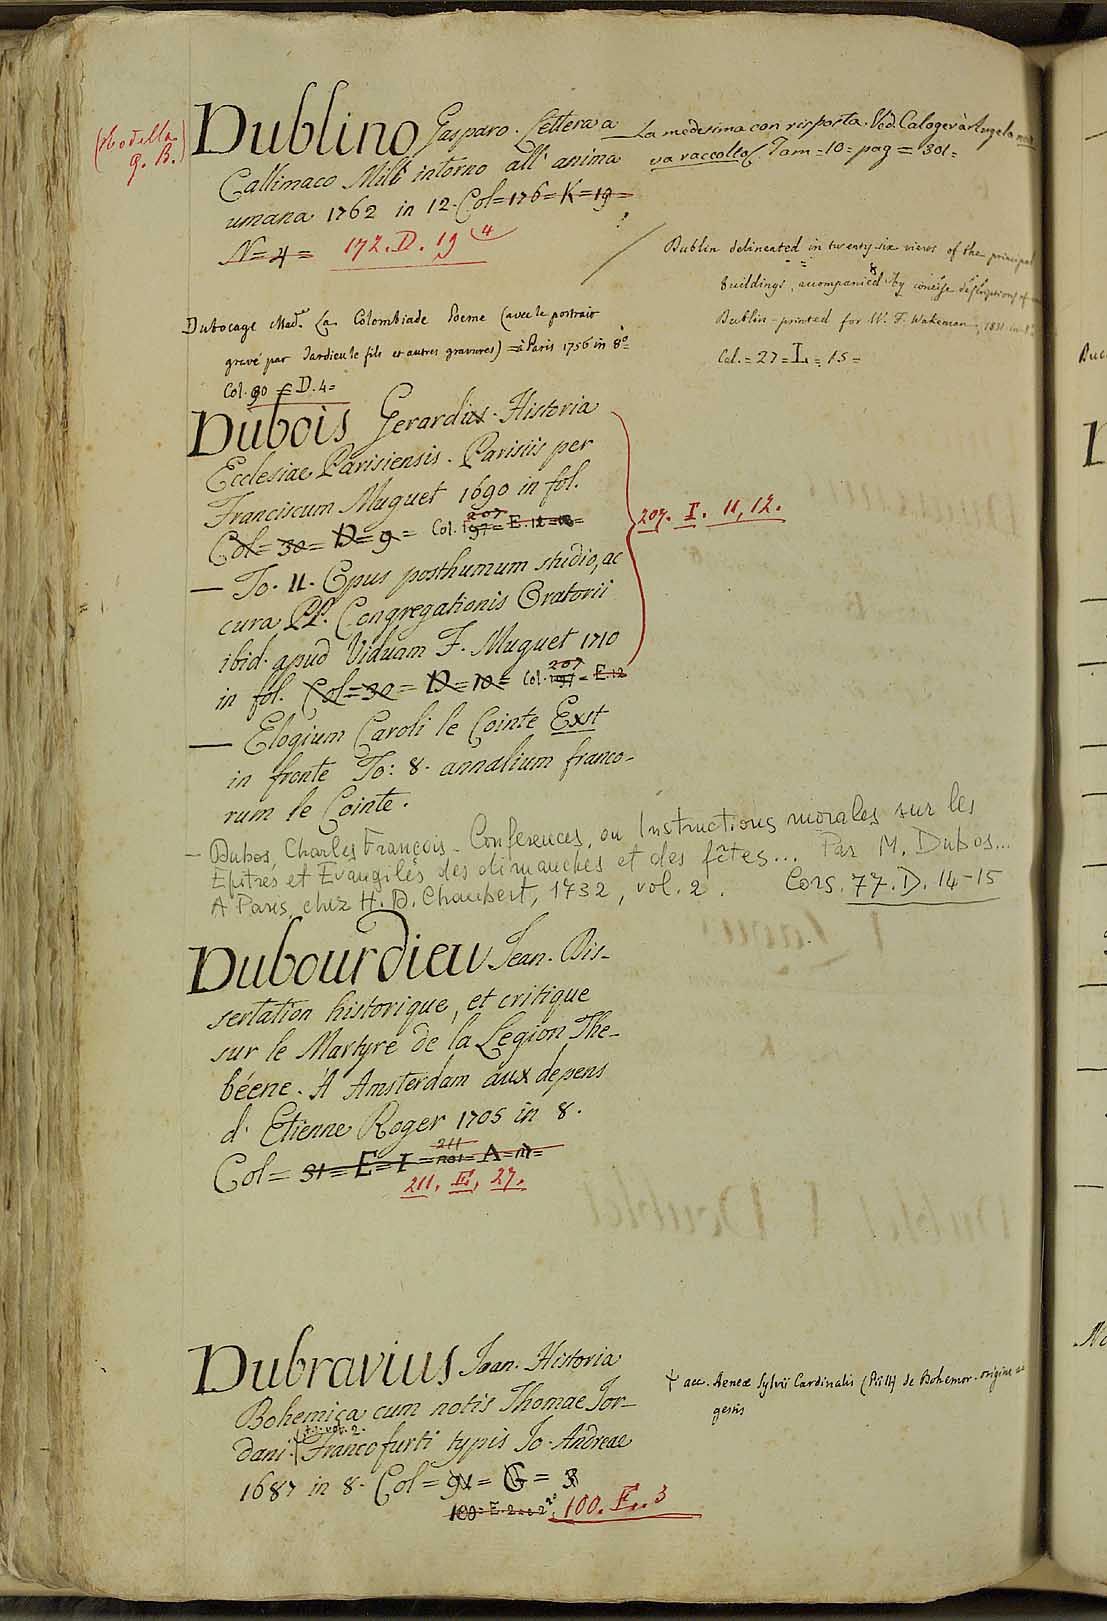 Dublino Gasparo. Lettera a
Callimaco Mili intorno all' anima
umana 1762 in 12. Col=176=K=19=
N=4= 172. D. 19 4
La medesima con risposta. Ved. Calogerà Angelo
va raccolta Tom=10=pag=301=
Dublin delineated in twenty six views of the principal
buildings, accompanied by concise descriptions of
Dublin-printed for W. F. Wakeman, 1831 in
Col.=27=L=15=
Dubocage Mad. La Colombiade Poeme (avec le portrait
gravé par Tardieu le fils et autres gravures) =à Paris 1756 in 8°=
Col. 90 = D. 4=
Dubois Gerardus. Historia
Ecclesiae Parisiensis. Parisiis per
Franciscum Muguet 1690 in fol.
Col=30=D=9= Col. 207
— To. II. Opus posthumum studio, ac
cura PP. Congregationis Oratorii
ibid. apud Viduam F. Muguet 1710
in fol. Col=30=D=10= Col. 207 = E. 12
207. I. 11, 12.
— Elogium Caroli le Cointe Exst
in fronte To: 8. annalium franco-
rum le Cointe.
— Dubos, Charles François - Conferences, ou Instructions morales sur les
Epitres et Evangiles des dimanches et des fêtes... Par M. Dubos...
A Paris, chez H. D. Chaubert, 1732, vol. 2. Cors. 77. D. 14-15
Dubourdieu Jean. Dis-
sertation historique, et critique
sur le Martyre de la Legion The-
béene. A Amsterdam aux depens
d' Etienne Roger 1705 in 8.
211
Col=31=E=I=
211. E, 27.
Dubravius Ioan. Historia
Bohemica cum notis Thomae Jor-
dani. Francofurti typis Io. Andreae
1687 in 8. Col=91=G=3
100. E. 3
acc. Aeneae Sylvii Cardinalis (Pii II) de Bohemor. origine ac
gestis